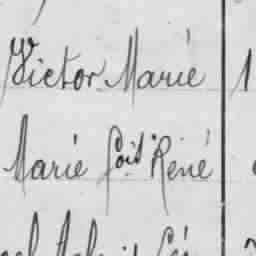 Victor Marié 1
Marié soit René